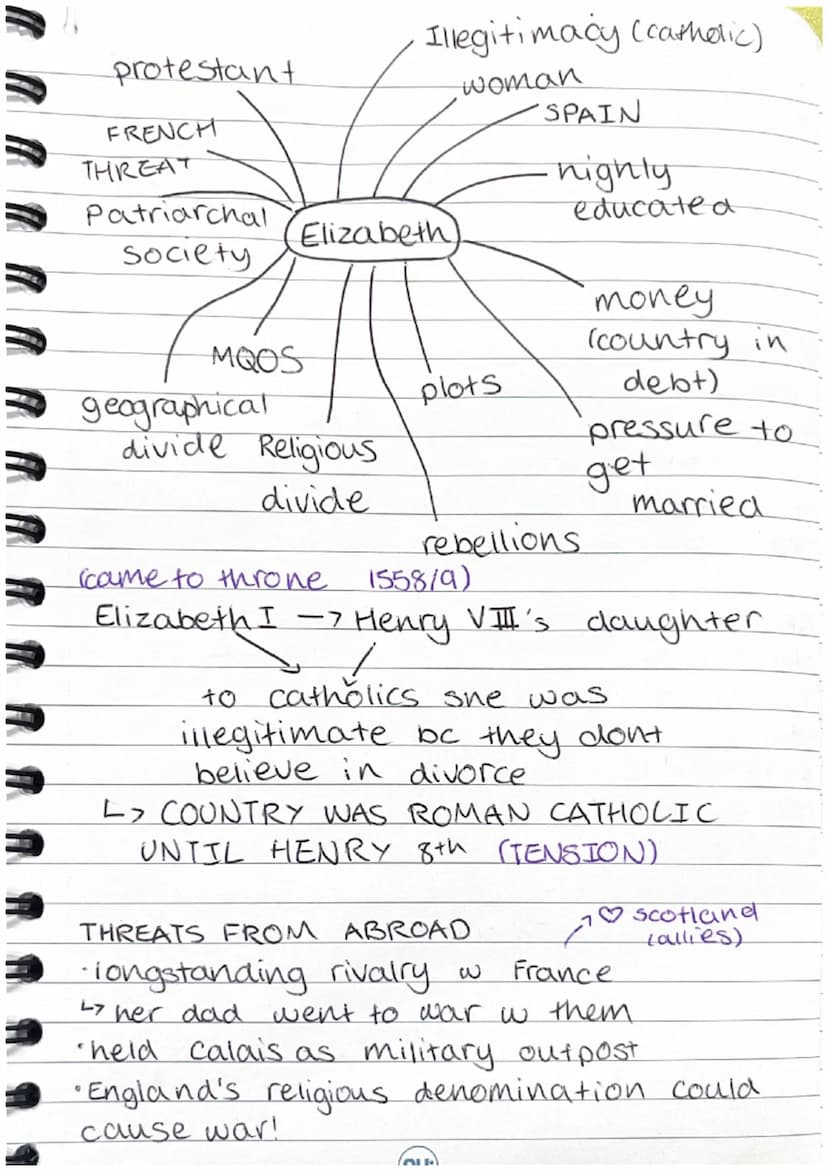 Illegitimacy (catholic)
protestant
woman
SPAIN
FRENCH
THREAT
highly
educated
Patriarchal
society
Elizabeth
money
(country in
debt)
MQOS
plots
geographical
divide
Religious
divide
pressure to
get
married
rebellions
(came to throne 1558/9)
Elizabeth I → Henry VIII's daughter
to catholics she was
illegitimate bc they dont
believe in divorce
↳ COUNTRY WAS ROMAN CATHOLIC
UNTIL HENRY 8th (TENSION)
THREATS FROM ABROAD
↗ ♡ scotland
(allies)
·longstanding rivalry w France
↳ her dad went to war w them
·held Calais as military outpost
·England's religious denomination could
cause war!